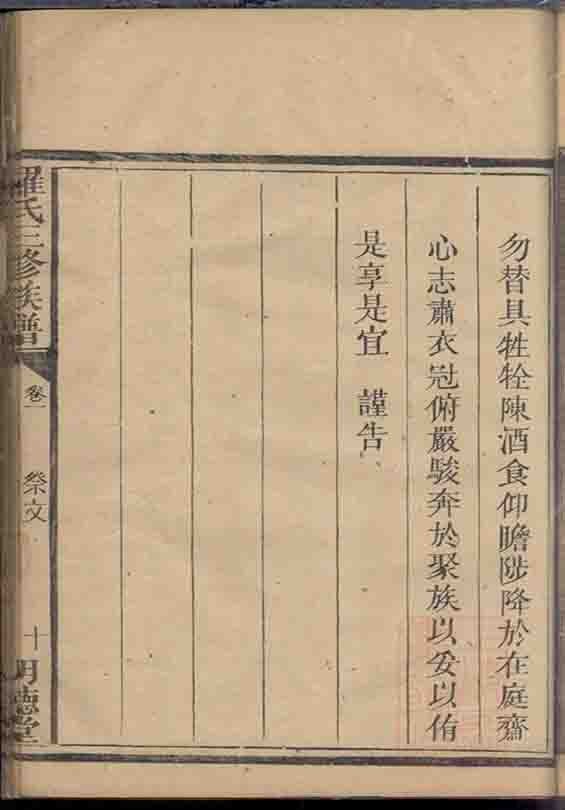 勿替具牲牷陳酒食仰瞻陟降於在庭齋
心志肅衣冠俯嚴駿奔於聚族以妥以侑
是享是宜 謹告
羅氏三修族譜 卷一 祭文 十 明德堂